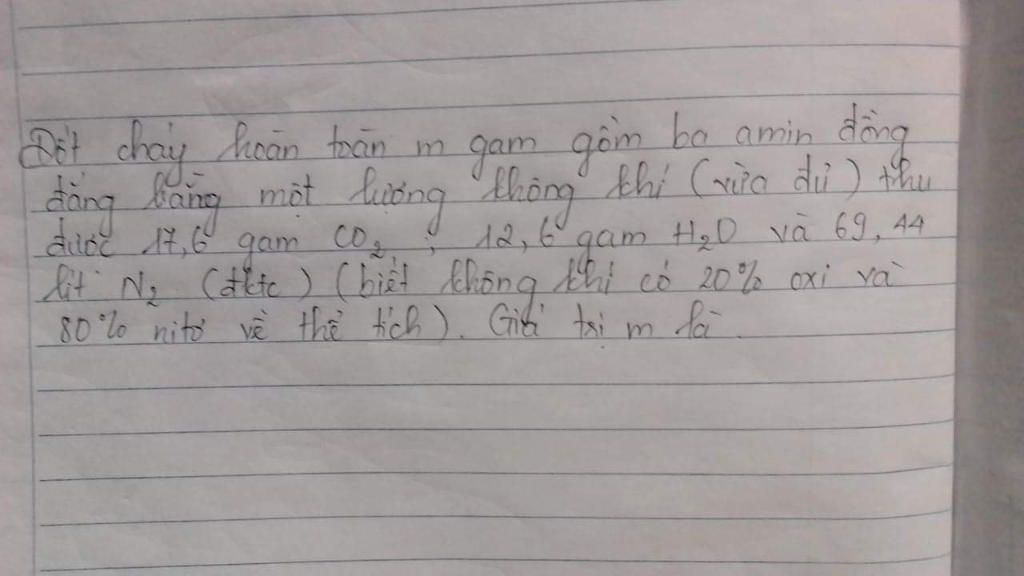 Đốt cháy hoàn toàn m gam gồm ba amin đồng
đẳng bằng một lượng không khí (vừa đủ) thu
được 17,6 gam CO2 ; 12,6 gam H2O và 69,44
lít N2 (đktc) (biết không khí có 20% oxi và
80% nitơ về thể tích). Giá trị m là